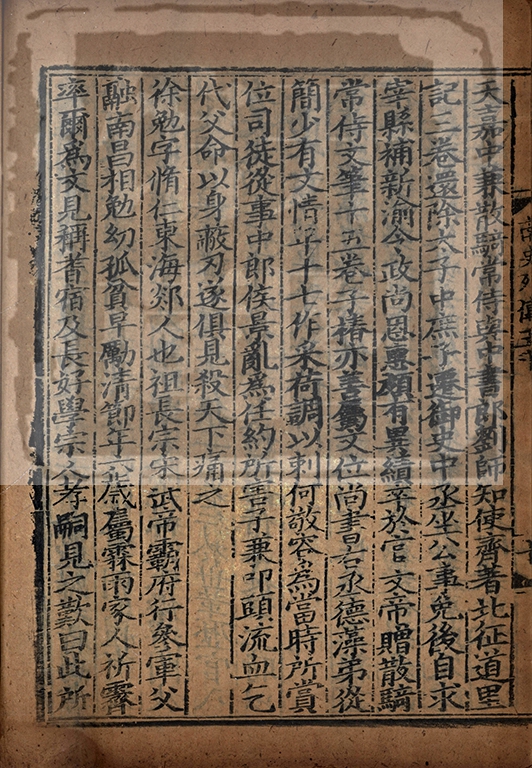 天嘉中兼散騎常侍與中書郎劉師知使齊著北征道里
記三卷還除太子中庶子遷御史中丞坐公事免後自求
宰縣補新渝令政尚恩惠頗有異績卒於官文帝贈散騎
常侍文筆十五卷子椿亦善屬文位尚書右丞德藻弟從
簡少有文情年十七作采荷調以刺何敬容為當時所賞
位司徒從事中郎侯景亂為任約所害子兼叩頭流血乞
代父命以身蔽刃遂俱見殺天下痛之
徐勉字脩仁東海郯人也祖長宗宋武帝霸府行參軍父
融南昌相勉幼孤貧早勵清節年六歲屬霖雨家人祈霽
率爾為文見稱耆宿及長好學宗人孝嗣見之歎曰此所